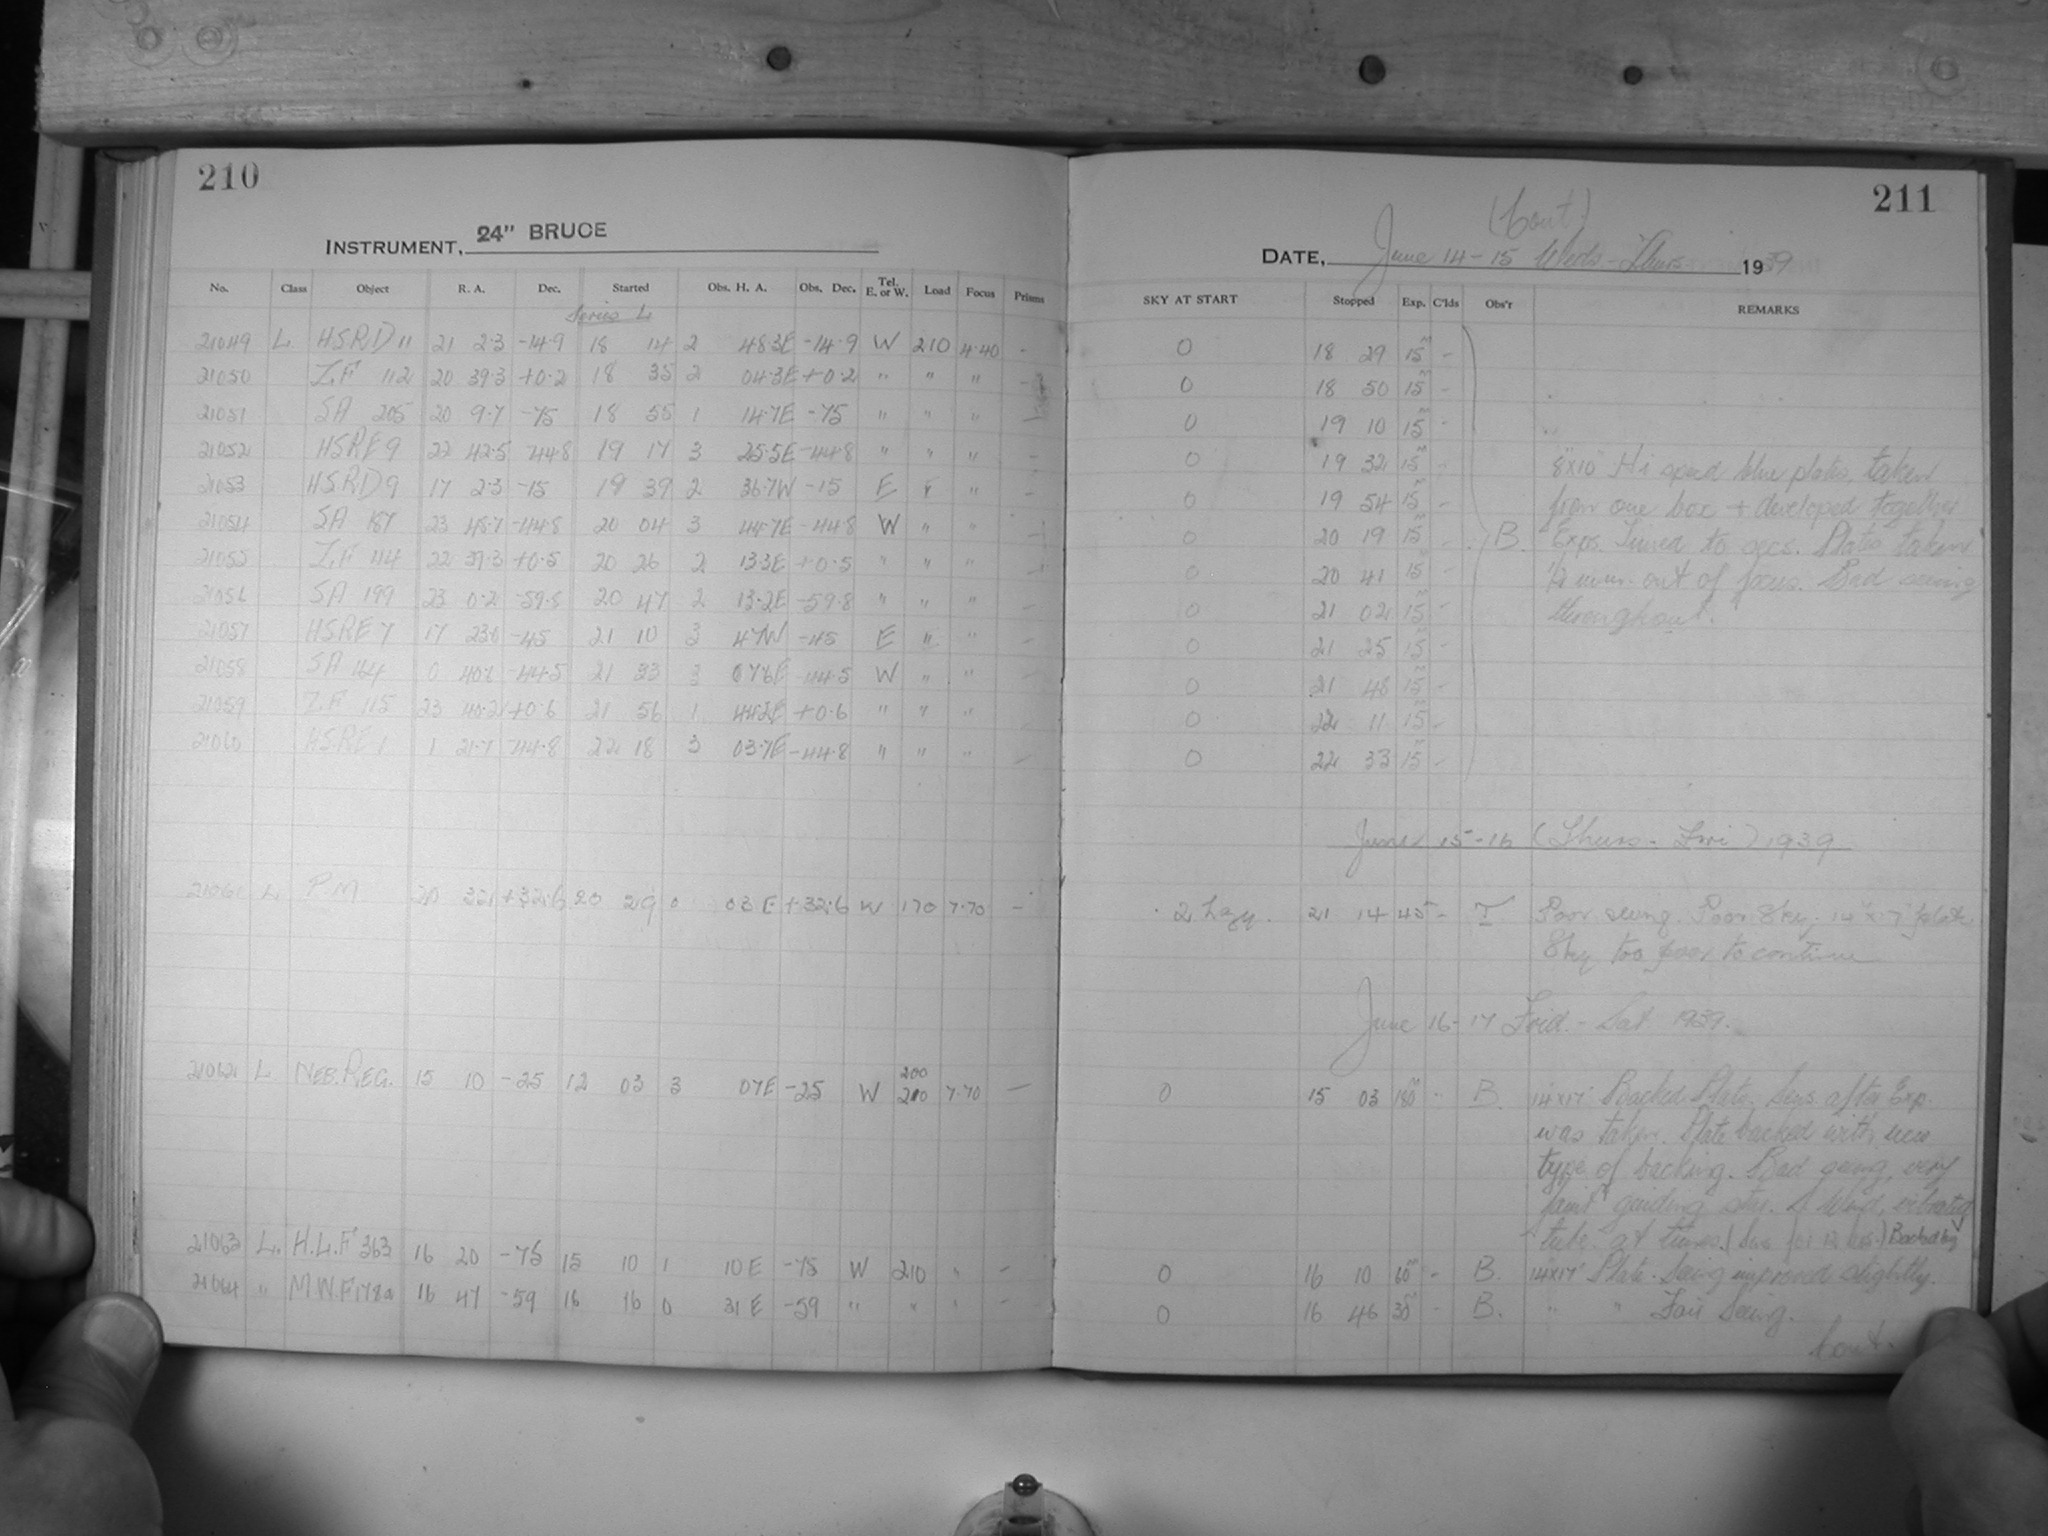 210
INSTRUMENT, 24" BRUCE
No. Class Object R. A. Dec. Started Obs. H. A. Obs. Dec. Tel. E. or W. Load Focus Prisms
Series L
21049 L HSRD 11 21 2.3 -14.9 18 14 2 48.3E -14.9 W 210 4.40 -
21050 Z.F 112 20 39.3 +0.2 18 35 2 04.3E +0.2 " " " -
21051 SA 205 20 9.7 -75 18 55 1 14.7E -75 " " " -
21052 HSRE 9 22 42.5 -44.8 19 17 3 25.5E -44.8 " " " -
21053 HSRD 9 17 2.3 -15 19 39 2 36.7W -15 E " " -
21054 SA 187 23 45.7 -44.8 20 04 3 44.7E -44.8 W " " -
21055 Z.F 114 22 39.3 +0.5 20 26 2 13.3E +0.5 " " " -
21056 SA 199 23 0.2 -59.8 20 47 2 13.2E -59.8 " " " -
21057 HSRE 7 17 23.6 -45 21 10 3 47W -45 E " " -
21058 SA 164 0 40.6 -44.5 21 33 3 07.6E -44.5 W " "
21059 Z.F 115 23 40.2 +0.6 21 56 1 44.2E +0.6 " " "
21060 HSRE 1 1 21.7 -44.8 22 18 3 03.7E -44.8 " " " -
21061 L P.M 20 32.1 +32.6 20 29 0 03 E +32.6 W 170 7.70 -
200
21062 L NEB. REG. 15 10 -25 12 03 3 07E -25 W 210 7.70 -
21063 L. H.L.F 363 16 20 -75 15 10 1 10E -75 W 210 " -
21064 " M.W.F 178a 16 47 -59 16 16 0 31E -59 " " " -
211
(Cont)
DATE, June 14-15 Weds-Thurs 1939
SKY AT START Stopped Exp. C'lds Obs'r REMARKS
0 18 29 15m -
0 18 50 15m -
0 19 10 15m -
0 19 32 15m - 8"x10" Hi speed blue plates, taken
0 19 54 15m - from one box + developed together
0 20 19 15m - B. Exps. timed to secs. Plates taken
0 20 41 15m - 1/2 mm. out of focus. Bad seeing
0 21 02 15m - throughout.
0 21 25 15m -
0 21 48 15m -
0 22 11 15m -
0 22 33 15m -
June 15-16 (Thurs - Fri) 1939
2 hazy. 21 14 45 - T Poor seeing. Poor Sky. 14"x17" plate
Sky too poor to continue
June 16-17 Frid. - Sat 1939.
0 15 03 180m - B. 14"x17" Backed Plate. Sens after Exp.
was taken. Plate backed with new
type of backing. Bad seeing, very
faint guiding star. S Wind, vibrated
tube at times.
0 16 10 60m - B. 14"x17" Plate. Seeing improved slightly.
0 16 46 30m - B. " " Fair Seeing.
Cont.